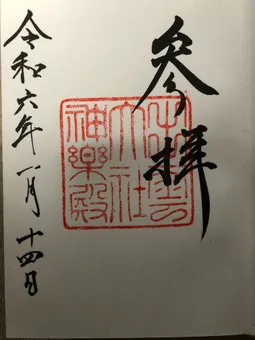 参拝
出雲
大社
神樂殿
令和六年一月十四日